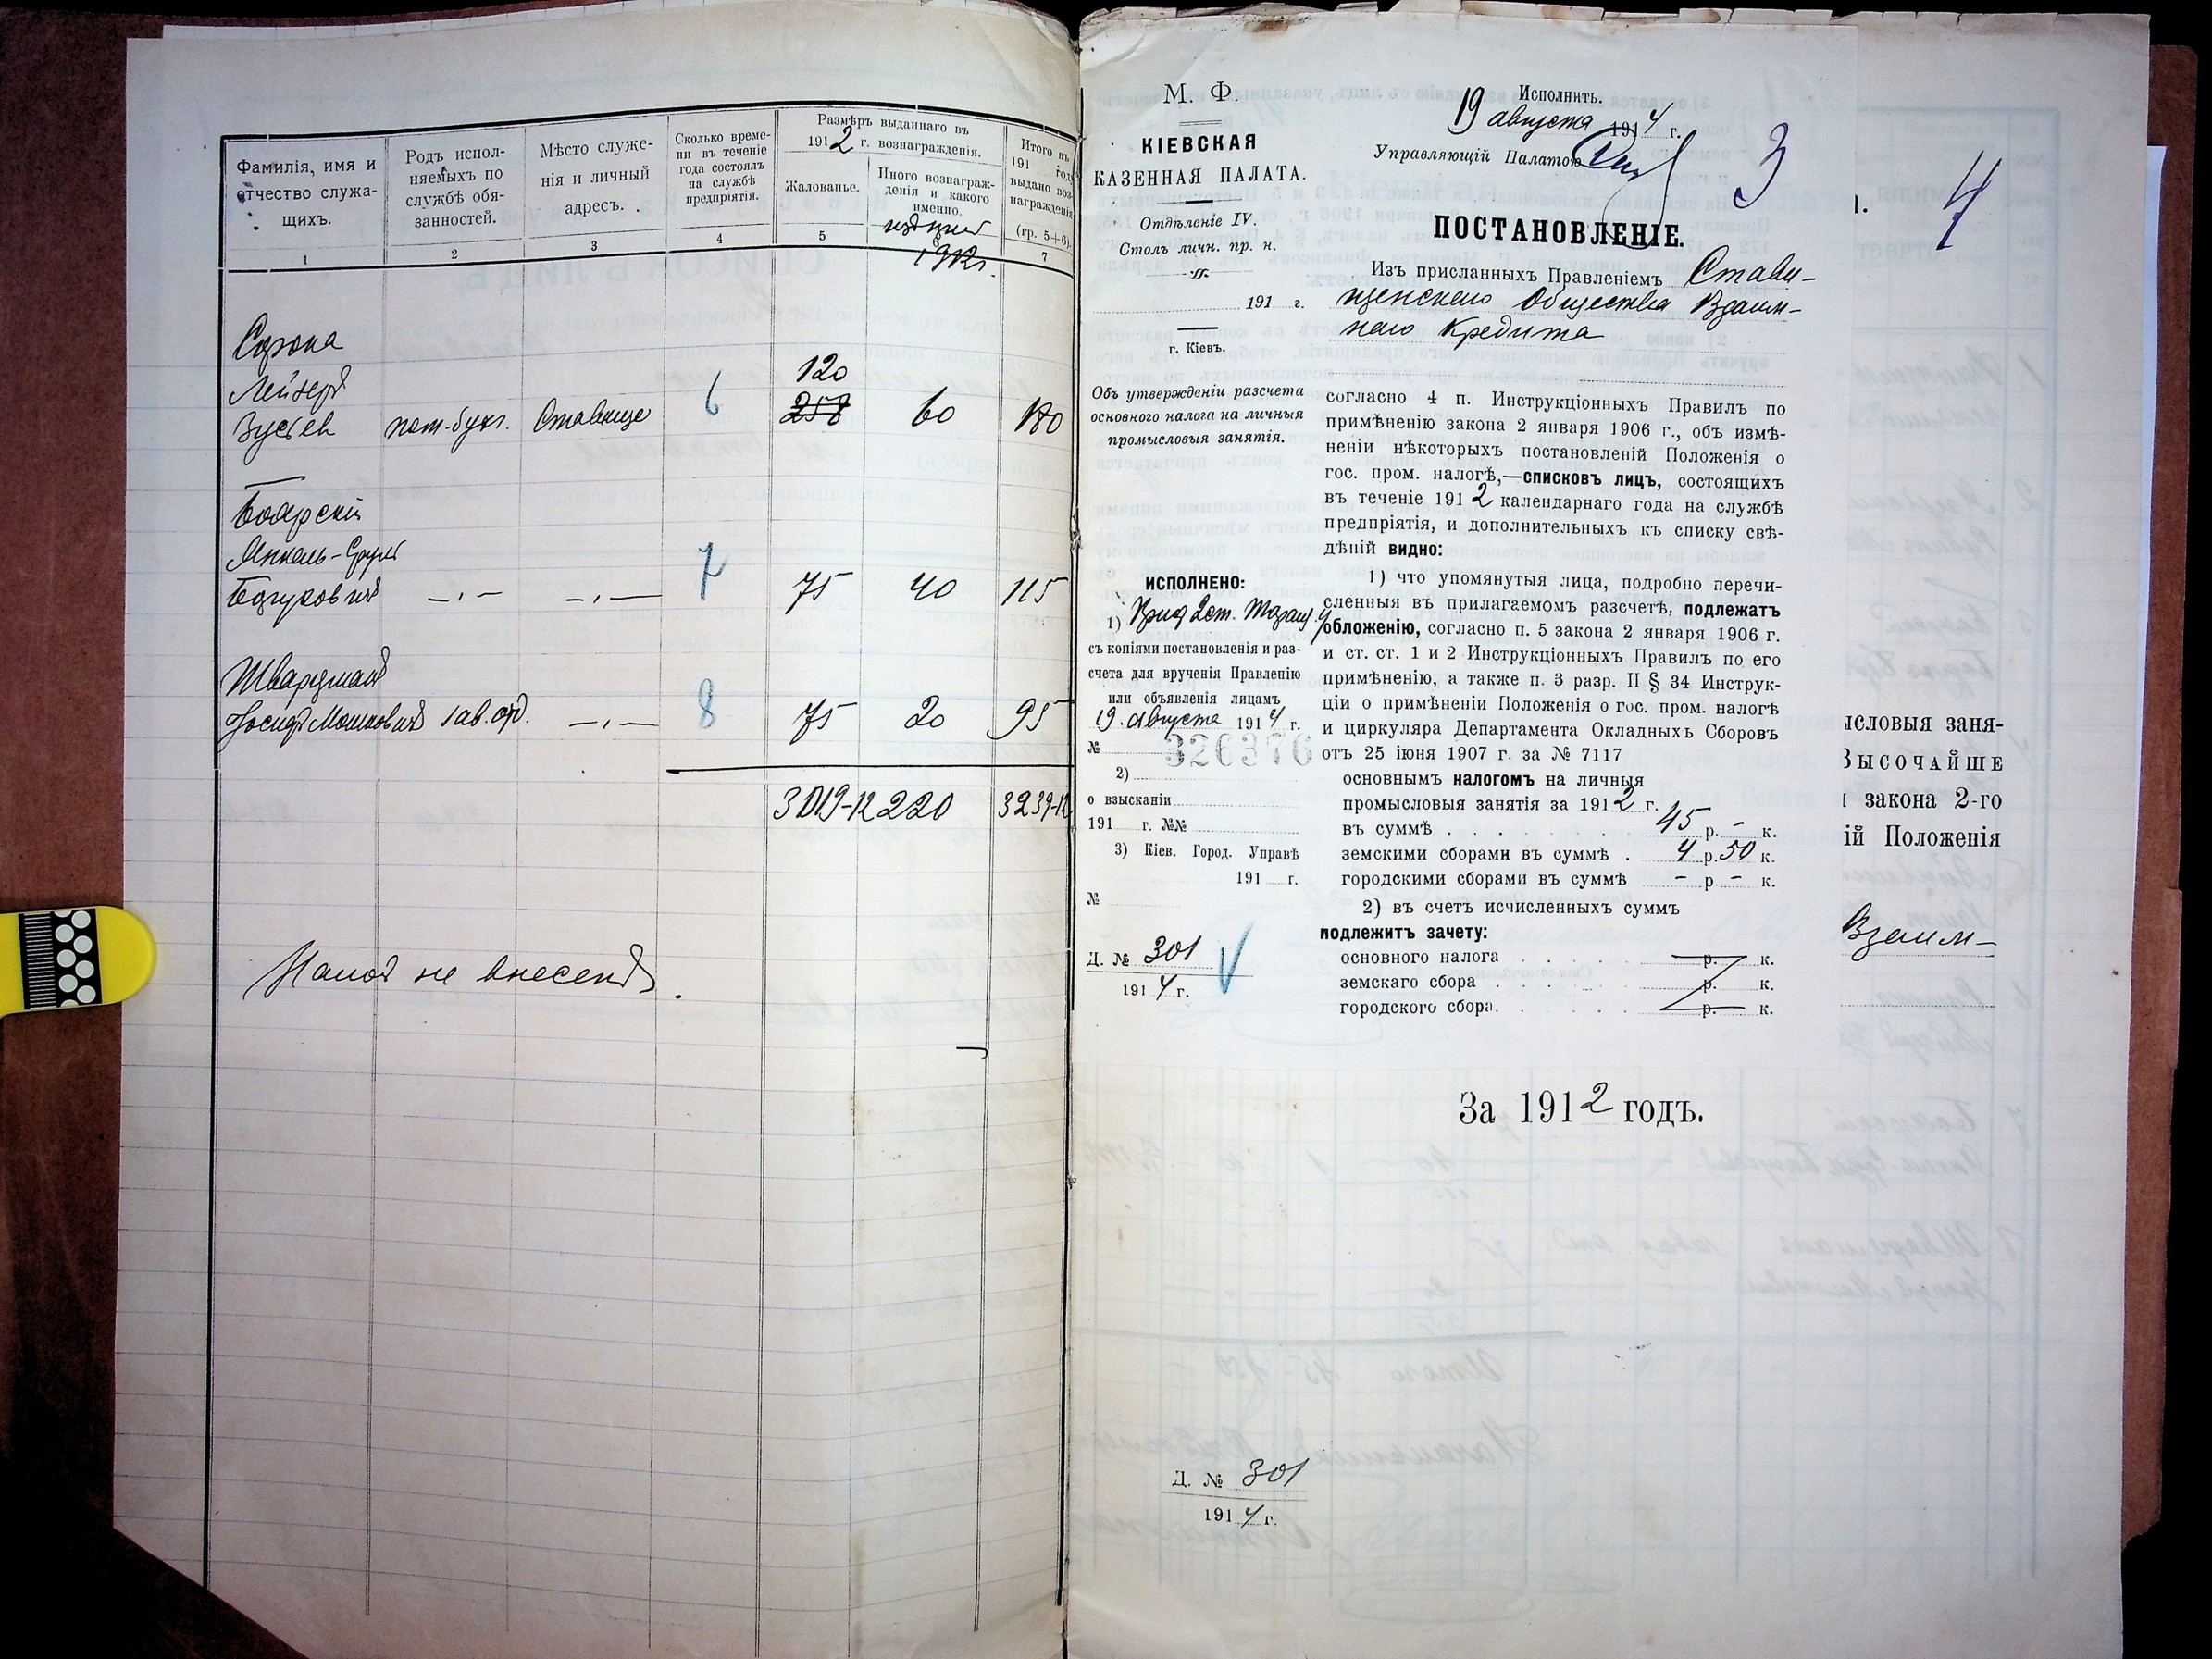 Фамилія, имя и
отчество служа-
щихъ.
Родъ испол-
няемыхъ по
службѣ обя-
занностей.
Мѣсто служе-
нія и личный
адресъ.
Сколько време-
ни въ теченіе
года состоялъ
на службѣ
предпріятія.
Размѣръ выданнаго въ
1912 г. вознагражденія.
Жалованье.
Иного вознаграж-
денія и какого
именно.
1912г.
Итого въ
191 году
выдано воз-
награжденія
(гр. 5+6).
1 2 3 4 5 6 7
Лейзеръ 120
Зусевъ пом-бухг. Ставище 6 258 60 180
Боярскій
Янкель-Сруль 7
— „ — — „ — 75 40 115
Шварцманъ 8
Іосифъ Мошковичъ зав. отд. — „ — 75 20 95
3019-12 220 3239-12
Налогъ не внесенъ.
М. Ф.
КІЕВСКАЯ
КАЗЕННАЯ ПАЛАТА.
Отдѣленіе IV.
Столъ личн. пр. н.
191 г.
г. Кіевъ.
Объ утвержденіи разсчета
основного налога на личныя
промысловыя занятія.
ИСПОЛНЕНО:
1)
съ копіями постановленія и раз-
счета для врученія Правленію
или объявленія лицамъ
19 августа 1914 г.
№ 326376
2)
о взысканіи
191 г. №№
3) Кіев. Город. Управѣ
191 г.
№
Д. № 301
1914 г.
Исполнить.
19 августа 1914 г.
Управляющій Палатою
3
ПОСТАНОВЛЕНІЕ.
Изъ присланныхъ Правленіемъ Стави-
щенскаго Общества Взаим-
наго Кредита
согласно 4 п. Инструкціонныхъ Правилъ по
примѣненію закона 2 января 1906 г., объ измѣ-
неніи нѣкоторыхъ постановленій Положенія о
гос. пром. налогѣ,—списковъ лицъ, состоящихъ
въ теченіе 1912 календарнаго года на службѣ
предпріятія, и дополнительныхъ къ списку свѣ-
дѣній видно:
1) что упомянутыя лица, подробно перечи-
сленныя въ прилагаемомъ разсчетѣ, подлежатъ
обложенію, согласно п. 5 закона 2 января 1906 г.
и ст. ст. 1 и 2 Инструкціонныхъ Правилъ по его
примѣненію, а также п. 3 разр. II § 34 Инструк-
ціи о примѣненіи Положенія о гос. пром. налогѣ
и циркуляра Департамента Окладныхъ Сборовъ
отъ 25 іюня 1907 г. за № 7117
основнымъ налогомъ на личныя
промысловыя занятія за 1912 г.
въ суммѣ . . . . 45 р. - к.
земскими сборами въ суммѣ . 4 р. 50 к.
городскими сборами въ суммѣ - р - к.
2) въ счетъ исчисленныхъ суммъ
подлежитъ зачету:
основного налога . . . . . р. к.
земскаго сбора . . . . . р. к.
городского сбора . . . . . р. к.
За 1912 годъ.
Д. № 301
1914 г.
4
исловыя заня-
ВЫСОЧАЙШЕ
закона 2-го
ій Положенія
Взаим-